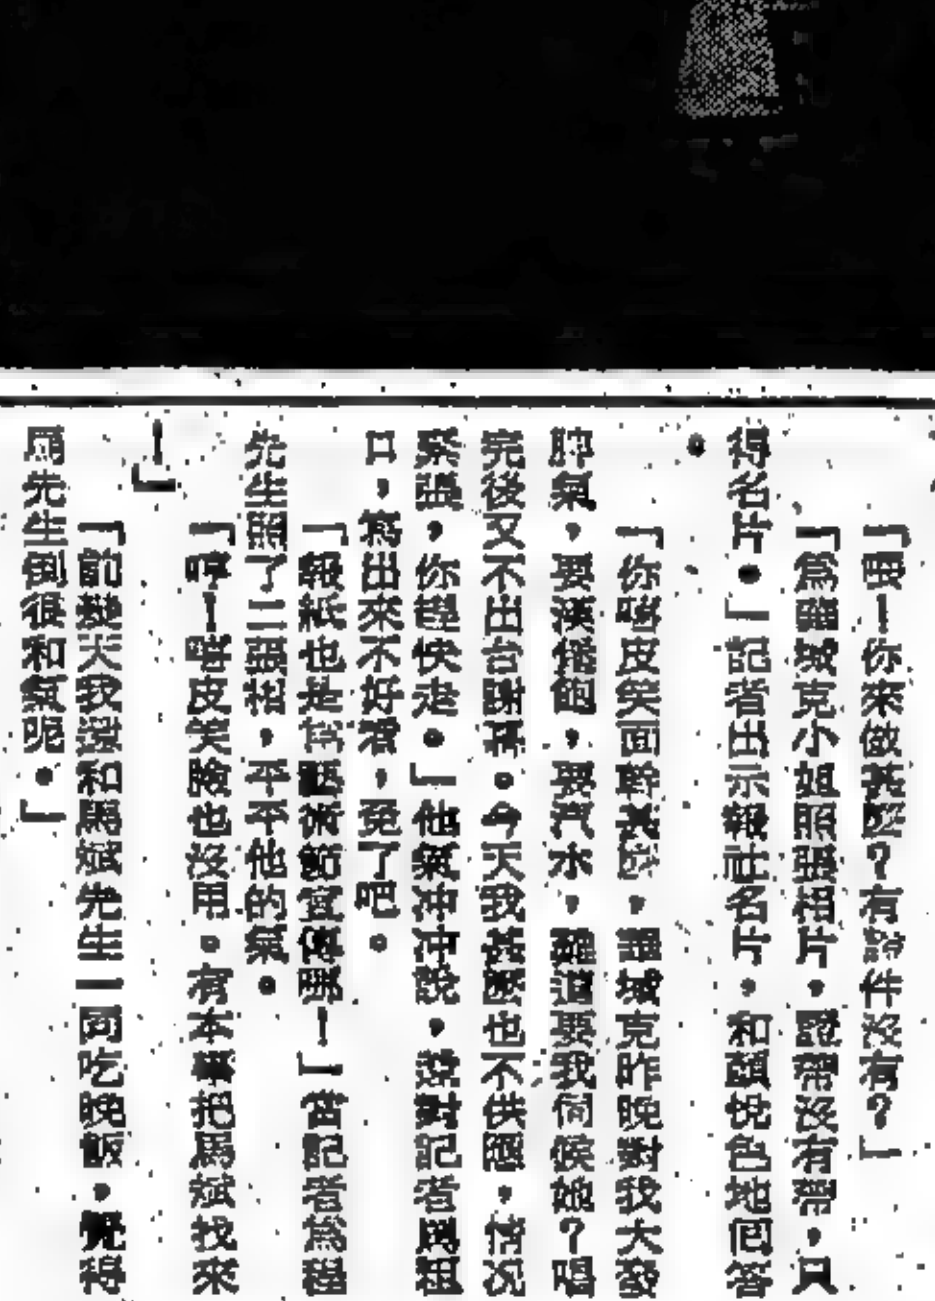 「喂!你來做甚麼?有證件沒有?」
「為羅城克小姐照張相片,證帶沒有帶,只
得名片。」記者出示報社名片,和顏悅色地回答
。
「你嘻皮笑面幹甚麼,羅城克昨晚對我大發
脾氣,要漢堡飽,要汽水,難道要我伺候她?唱
完後又不出台謝幕。今天我甚麼也不供應,情況
緊張,你趕快走。」他氣沖沖說,還對記者罵粗
口,寫出來不好看,免了吧。
「報紙也是為藝術節宣傳哪!」當記者為程
先生照了二張相,平平他的氣。
「哼!嘻皮笑臉也沒用。有本事把馬斌找來
!」
「前幾天我還和馬斌先生一同吃晚飯,覺得
馬先生倒很和氣呢。」